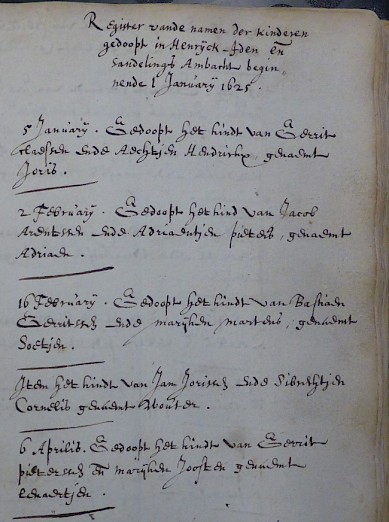 Register vande namen der kinderen
gedoopt in Henryck-Iden en
Sandelings Ambacht begin-
nende 1 January 1625.
5 January. Gedoopt het kindt van Gerrit
Claessen ende Aechtjen Hendricx, genaemt
Joris.
2 February. Gedoopt het kind van Jacob
Arentssen ende Adriaentjen pieters, genaemt
Adriaen.
16 February. Gedoopt het kindt van Bastiaen
Gerritssen ende marijken martens, genaemt
Soetjen.
Item het kindt van Jan Jorissen ende Sibrichtjen
Cornelis genaemt Wouter.
6 Aprilis. Gedoopt het kindt van Gerrit
pieterssen en marijken Joosten genaemt
Lenaertjen.